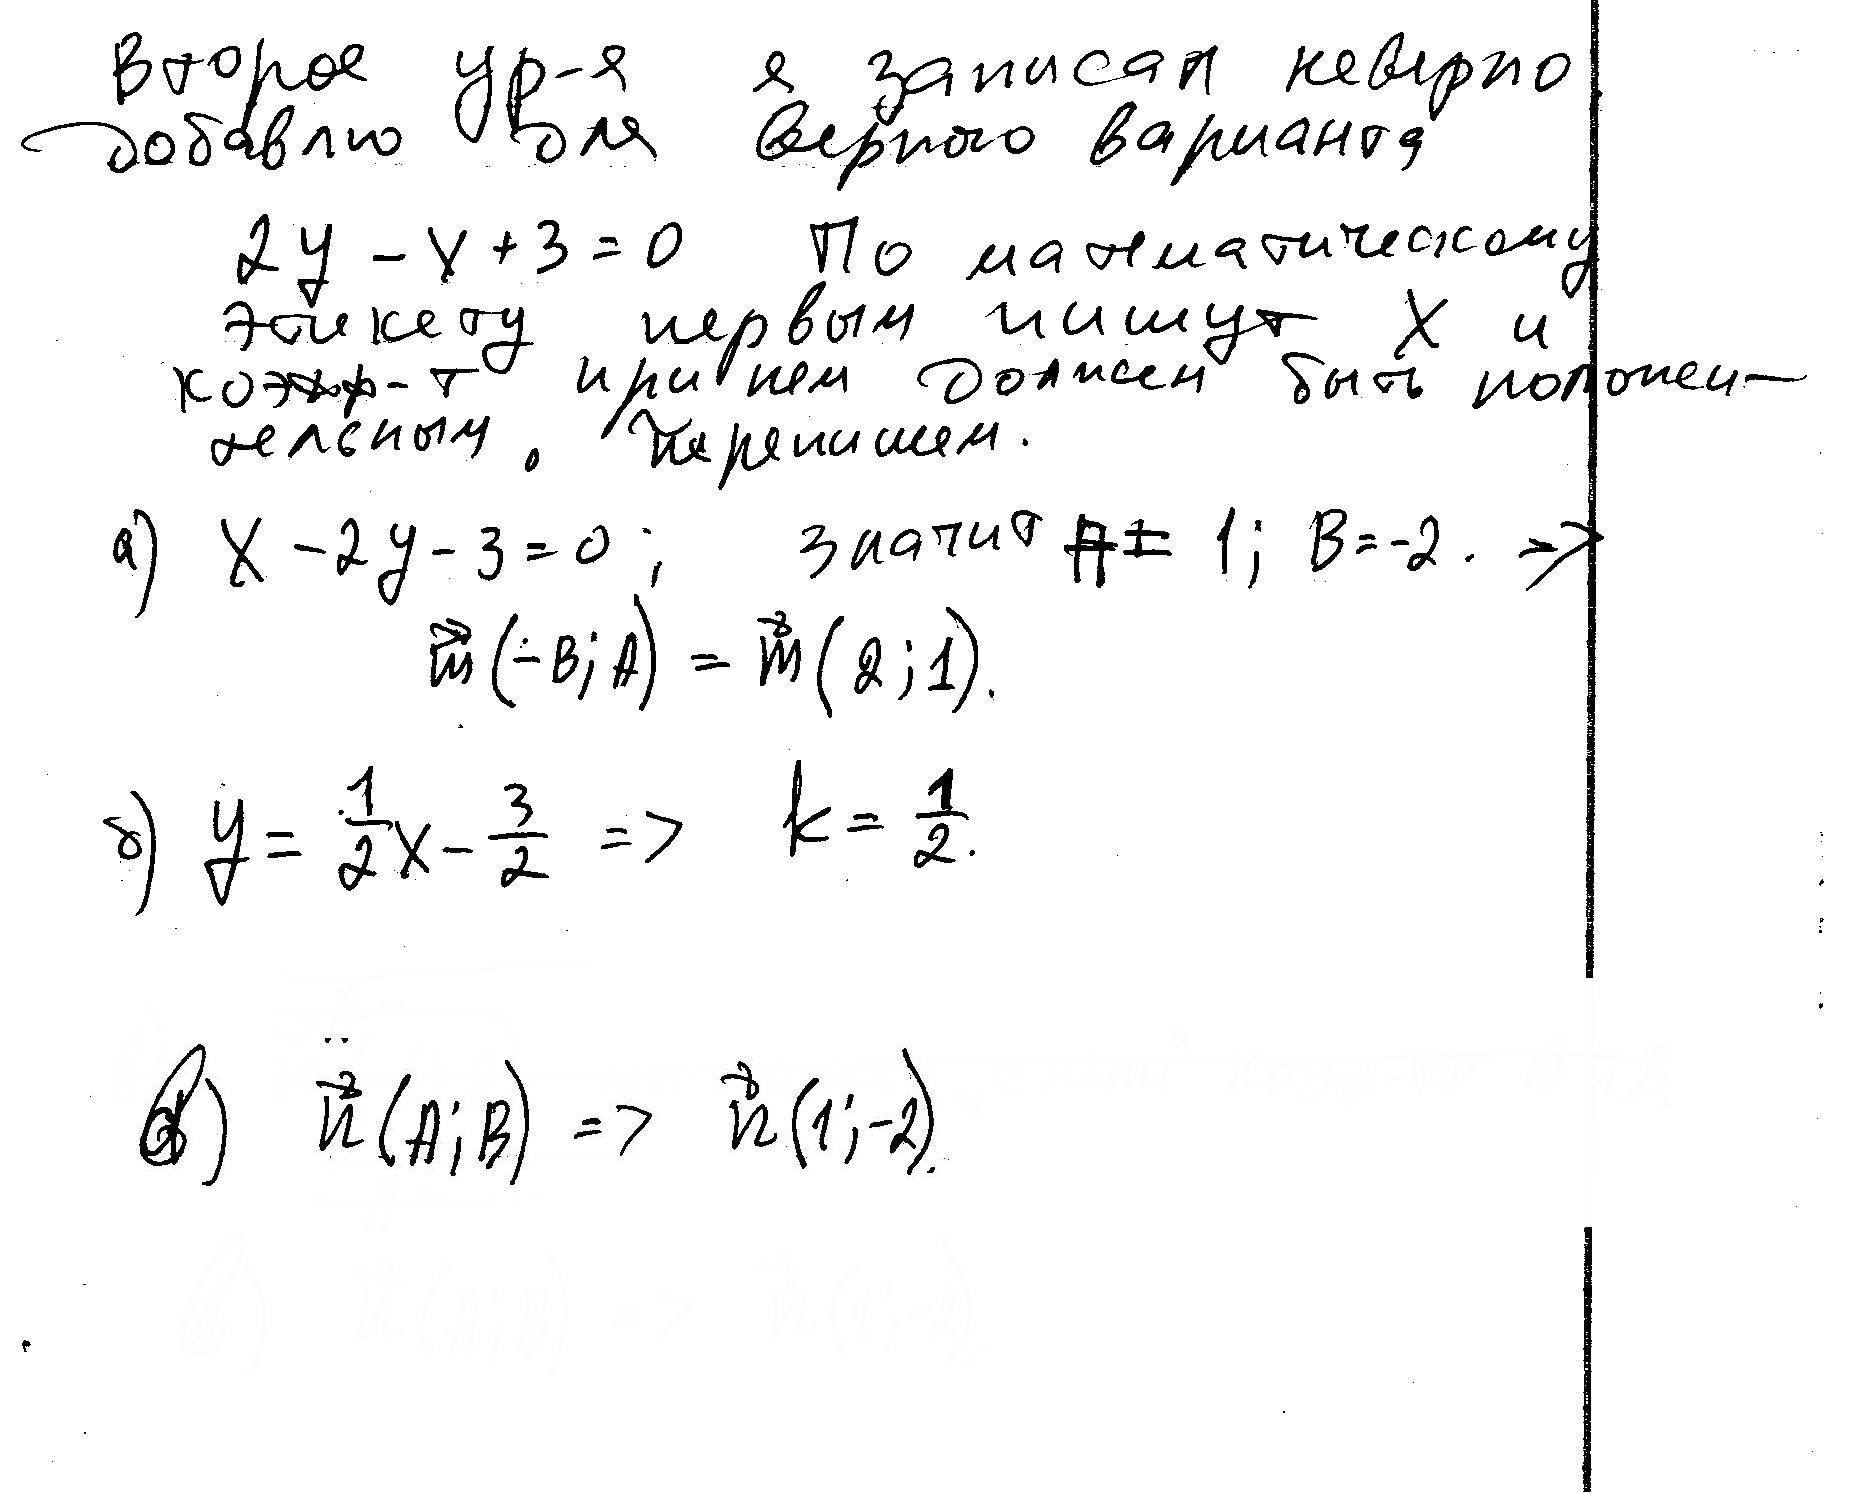 Второе ур-я я записал неверно
добавлю для верного варианта
2y - x + 3 = 0 По математическому
этикету первым пишут x и
коэфф-т при нем должен быть положи-
тельным. Перепишем.
а) x - 2y - 3 = 0; значит A = 1; B = -2. =>
m⃗(-B; A) = m⃗(2; 1).
б) y = 1/2 x - 3/2 => k = 1/2.
в) n⃗(A; B) => n⃗(1; -2).